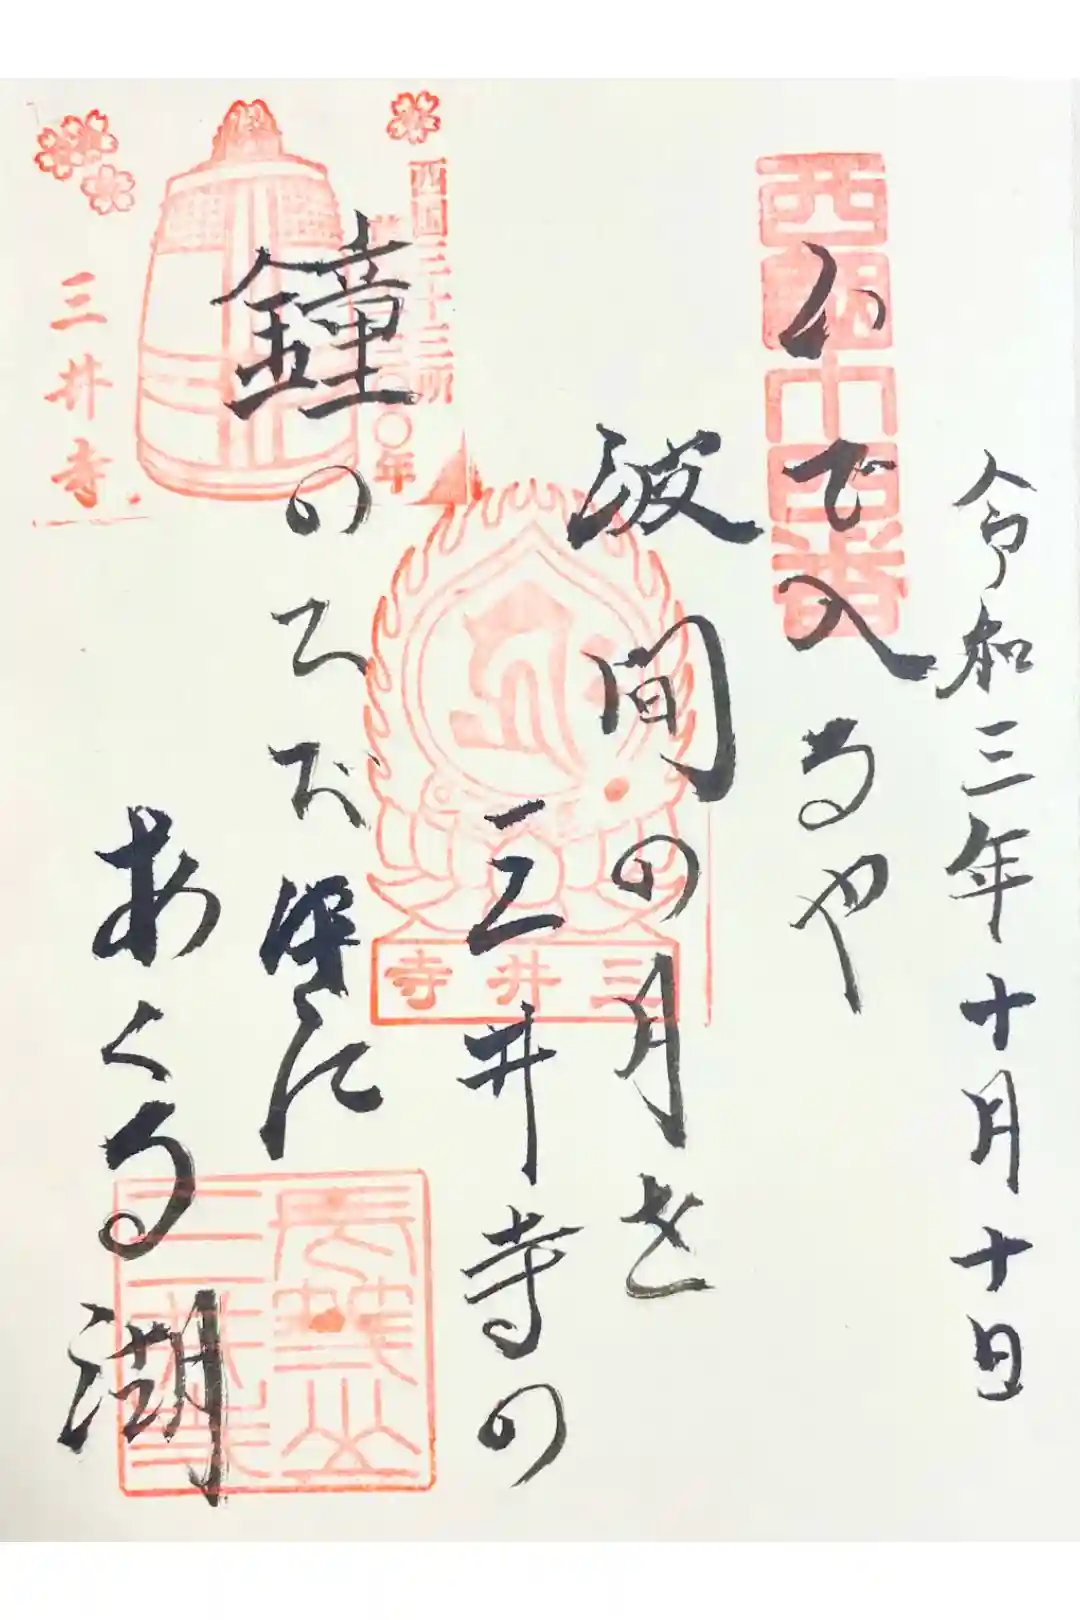 令和三年十月十日
西国十四番
いで入るや
波間の月を
三井寺の
鐘のひびきに
あくる湖
西国三十三所
三井寺
三井寺